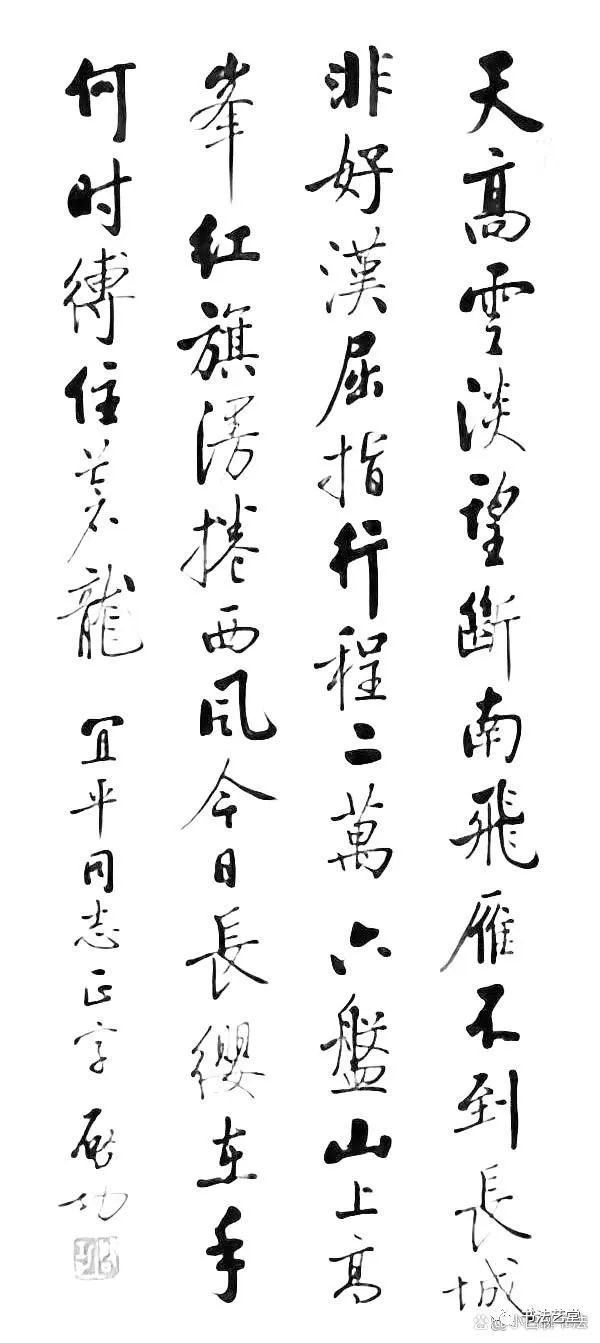 天高雲淡望斷南飛雁不到長城
非好漢屈指行程二萬六盤山上高
峯紅旗漫捲西风今日長纓在手
何时縛住蒼龍
宜平同志正字 启功
书法艺堂